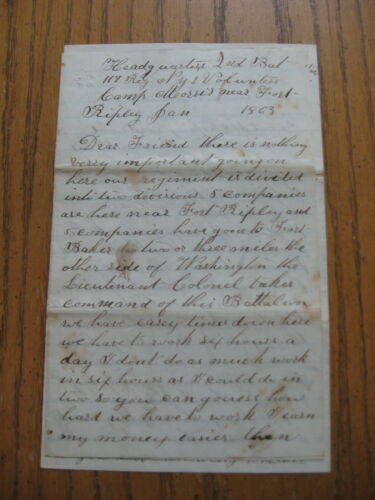 Headquarters 2nd Bat
117 Reg N.Y.S Volunters
Camp Morris near Fort
Ripley Jan 1863
Dear Friend there is nothing
verry important going on
here our regiment is divided
into two divisions 5 companies
are here near Fort Ripley and
5 companies have gone to Fort
Baker two or three miles the
other side of Washington the
Lieutenant Colonel takes
command of this Battalion
we have easey times down here
we have to work six hours a
day I dont do as much work
in six hours as I could do in
two so you can guess how
hard we have to work I earn
my money easier then